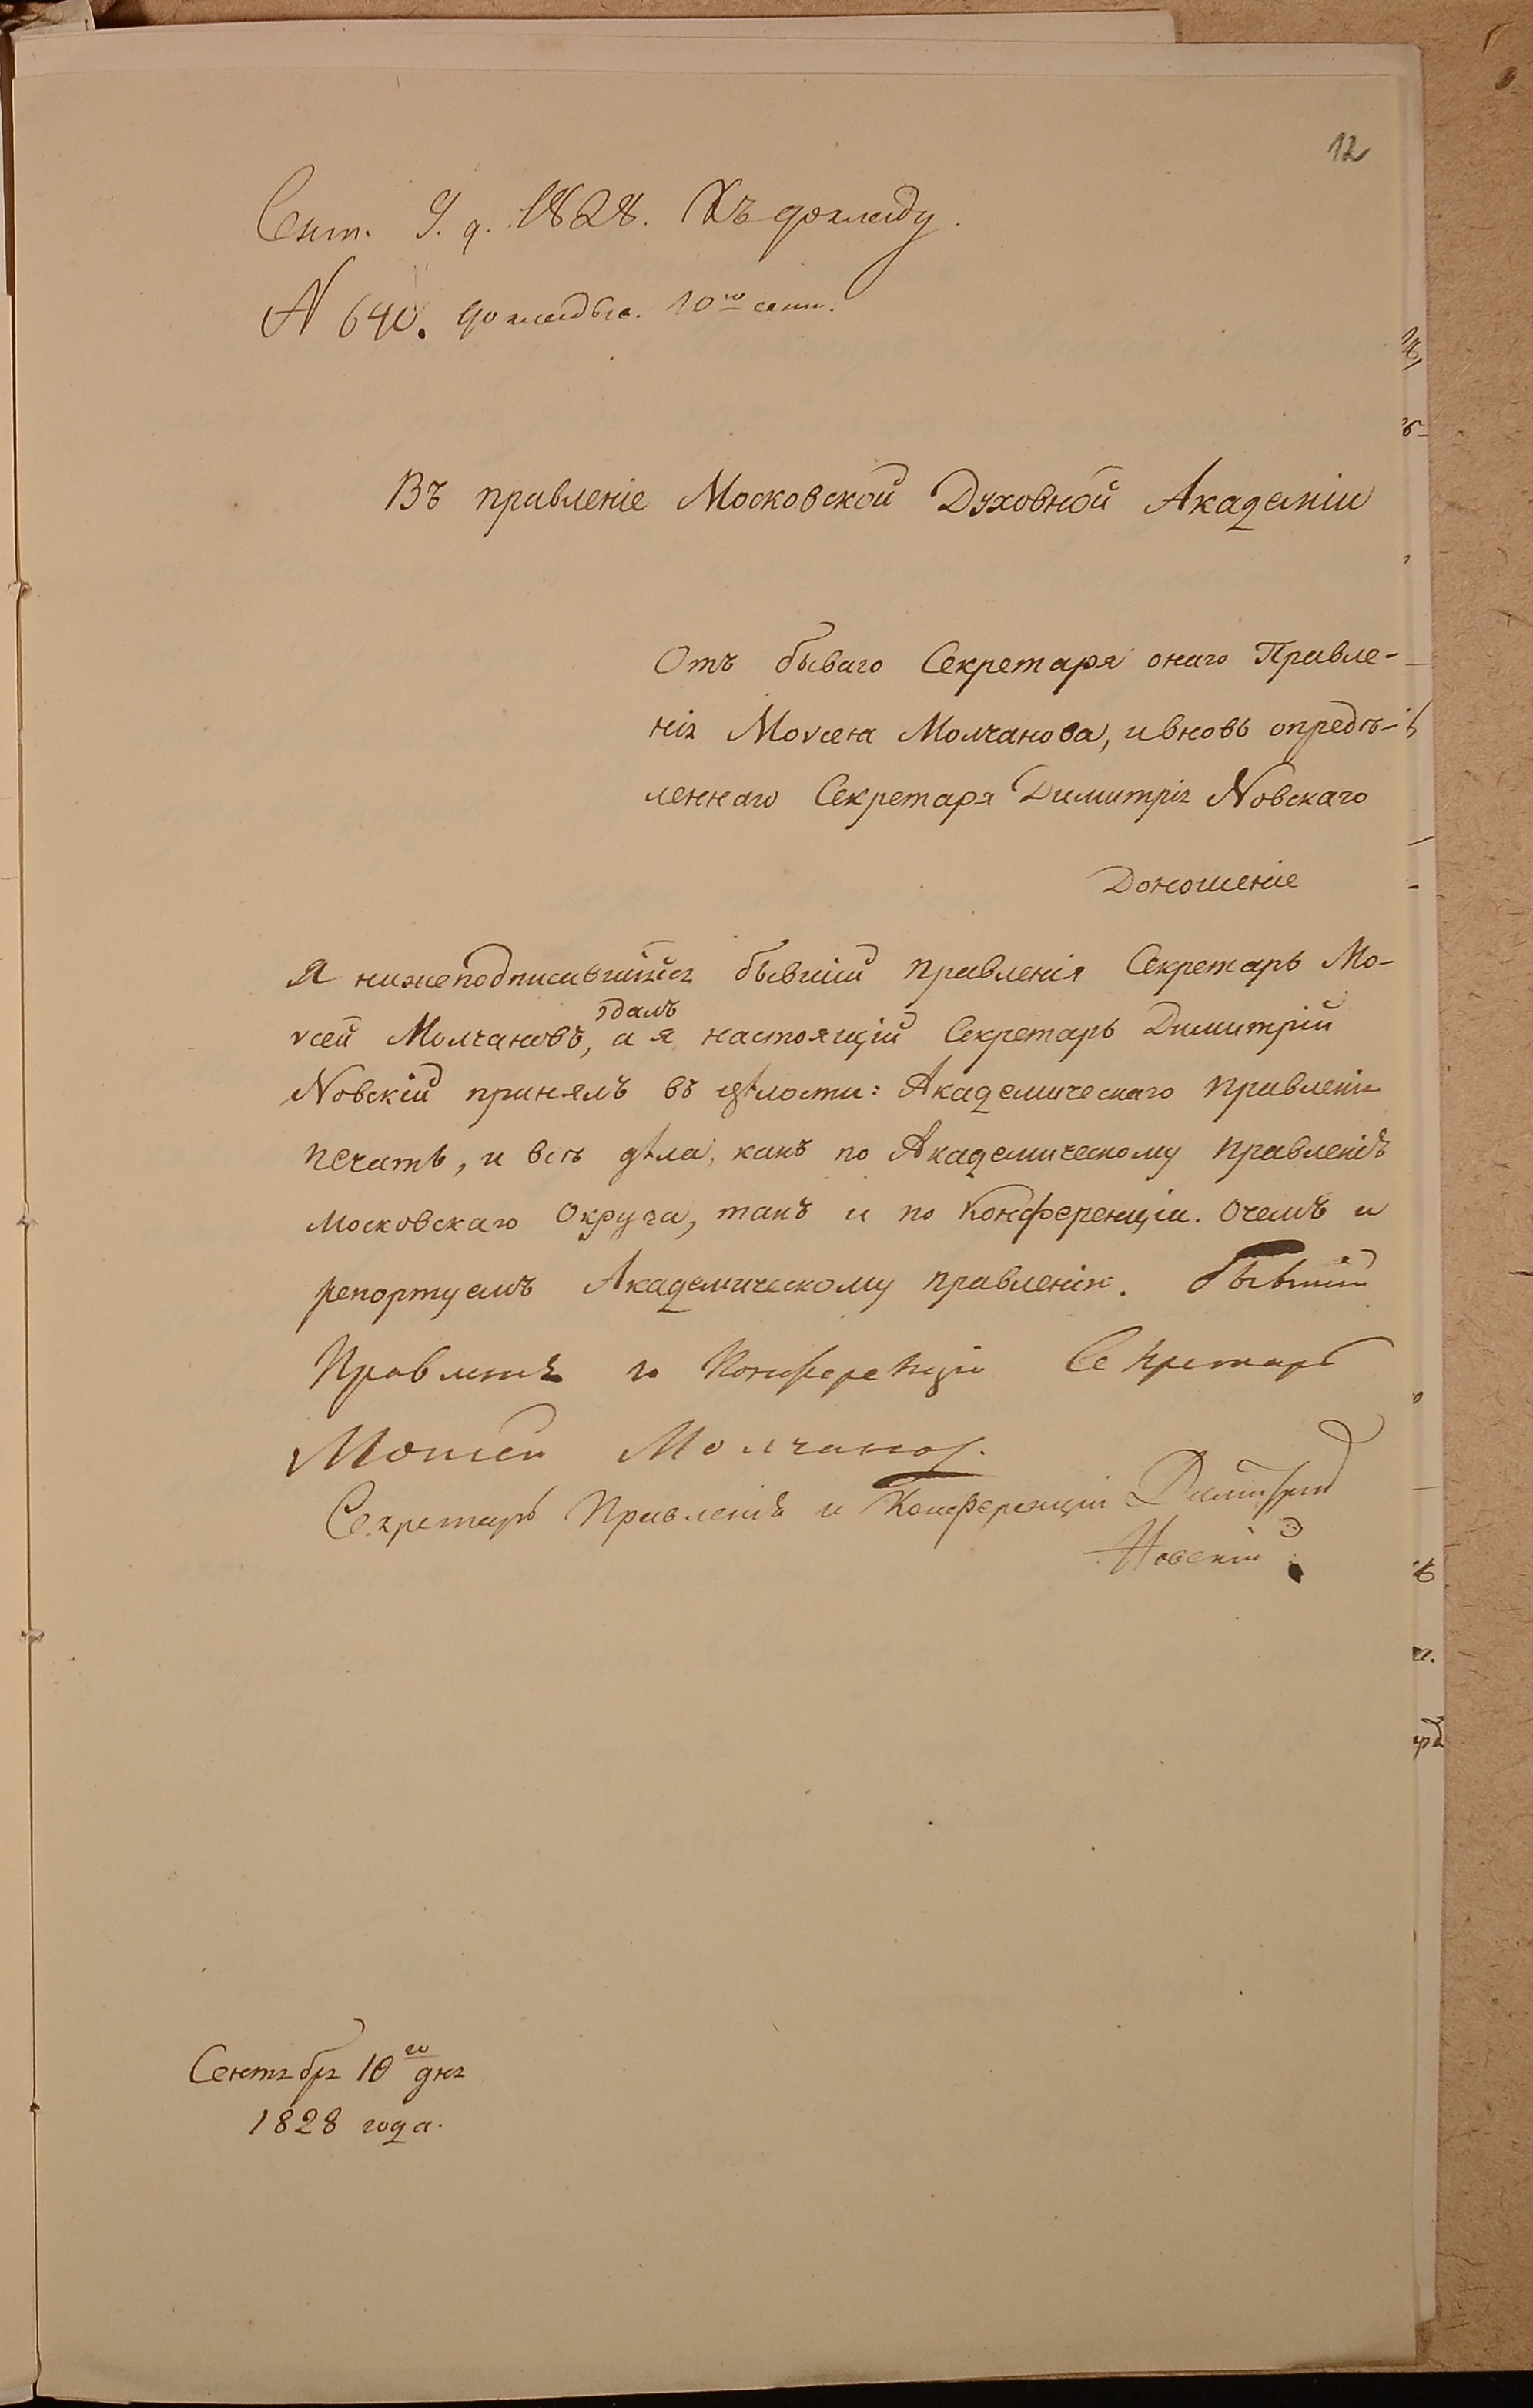 12
Сент. 9. д. 1828. Къ докладу.
N 640. докладыв. 10го сент.
Въ правленіе Московской Духовной Академіи
Отъ бываго Секретаря онаго Правле-
нія Моѵсея Молчанова, и вновь опредѣ-
леннаго Секретаря Димитрія Новскаго
Доношеніе
Я нижеподписавшійся бывшій правленія Секретарь Мо-
ѵсей Молчановъ, сдалъ а я настоящій Секретарь Димитрій
Новскій принялъ въ цѣлости: Академическаго правленія
печать, и всѣ дѣла, какъ по Академическому правленію
Московскаго Округа, такъ и по Конференціи. О чемъ и
репортуемъ Академическому правленію. Бывшій
Правленія и Конференціи Секретарь
Моѵсей Молчановъ.
Секретарь Правленія и Конференціи Димитрій
Новскій.
Сентября 10го дня
1828 года.